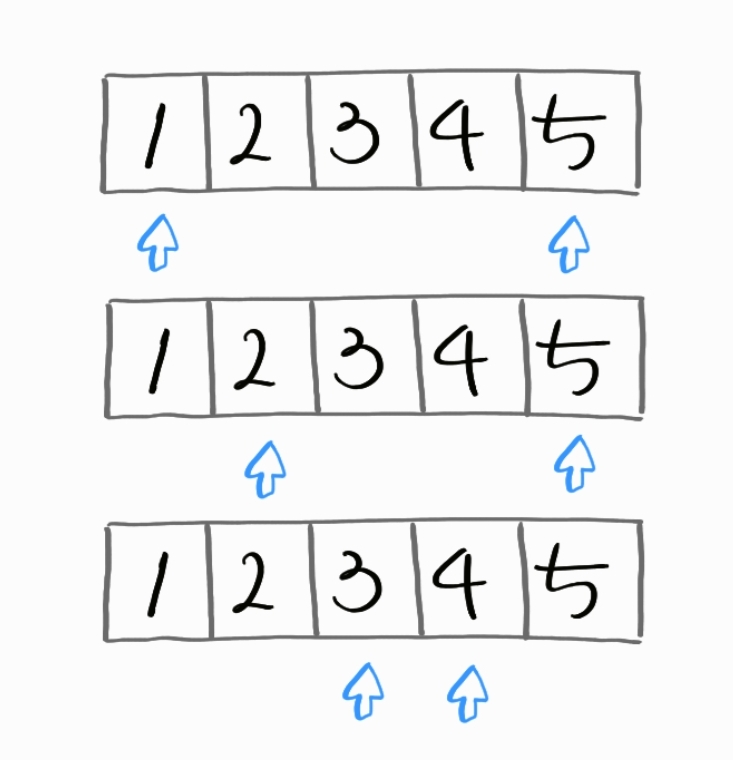 1 2 3 4 5
1 2 3 4 5
1 2 3 4 5